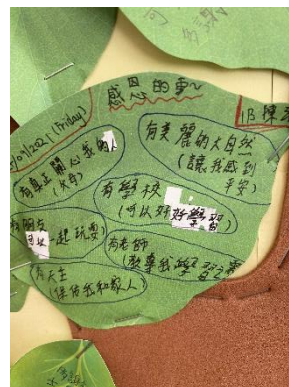 感恩的事~
/07/2021 (Friday)
1B 陳
有真正關心我的人
有美麗的大自然
(讓我感到
平安)
有學校
(可以好好學習)
有朋友
可以一起玩耍
有老師
(教導我學習
有天主
(保佑我和家人)